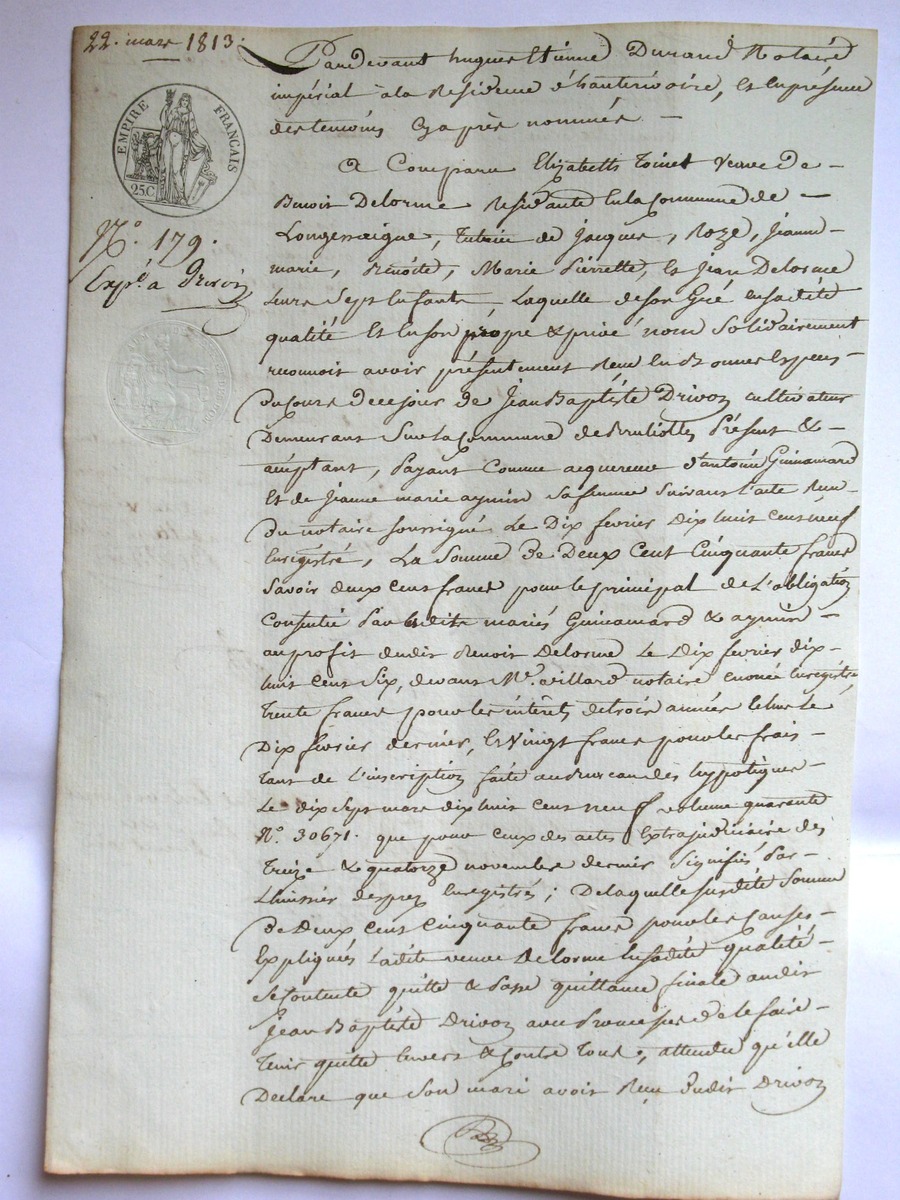 22. mars 1813.
EMPIRE FRANCAIS
25C
N.º 179.
Exp.é a Drivon
Pardevant hugues Etienne Durand Notaire
impérial à la Residence d'hauterivoire, Et En présence
des temoins Cy après nommés. —
A Comparu Elizabeth Toinet Veuve de —
Benoit Delorme Residante En la Commune de —
Longessaigne, Tutrice de Jacques, Roze, Jeanne
marie, Benoite, Marie Pierrette, Et Jean Delorme
Leurs Sept Enfants, Laquelle de Son Gré En sadite
qualité Et En son propre & privé nom Solidairement
reconnoit avoir présentement Reçu En Especes —
du Cours de ce jour de Jean Baptiste Drivon cultivateur
Demeurant Sur la Commune de Brulliolles Présent & —
acceptant, Payant Comme acquereur d'antoine Guinamard
Et de Jeanne marie aymin Sa femme Suivant l'acte Reçu —
du notaire Soussigné Le Dix fevrier Dix huit Cent neuf
Enrégistré, La Somme de Deux Cent Cinquante francs
Savoir deux Cent francs pour le principal de L'obligation
Consentie Par lesdits mariés Guinamard & aymin —
au profit dudit Benoit Delorme Le Dix fevrier dix-
huit Cent Six, devant M.e villard notaire Enrégistré
Trente francs pour les intérêts de trois années échus Le
Dix fevrier dernier, Et Vingt francs pour les frais —
tant de L'inscription faite au Bureau des hypotèques —
Le dix Sept mars dix huit Cent neuf volume quarante
N.º 30671. que pour Ceux des actes Extrajudiciaire des
Treize & quatorze novembre dernier Signifiés Par —
L'huissier desprez Enregistrés; De laquelle Susdite Somme
De Deux Cent Cinquante francs pour les Causes —
Expliquées Ladite veuve Delorme En sadite qualité —
Se Contente quitte & Passe quittance finale audit
Jean Baptiste Drivon avec Promesse De le faire —
Tenir quitte Envers & Contre Tous, attendu qu'Elle
Declare que Son mari avoit Reçu dudit Drivon